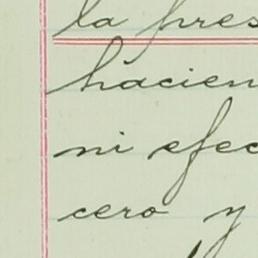 la pres
hacien
ni efec
cero y